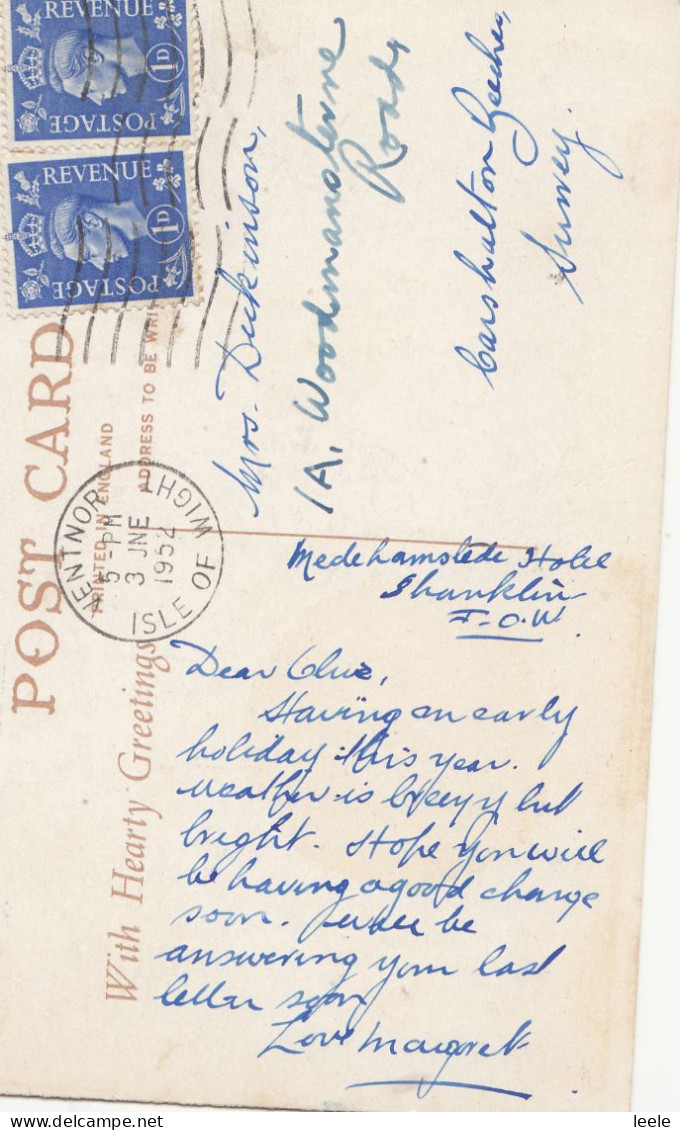 POST CARD
With Hearty Greetings
PRINTED IN ENGLAND
ADDRESS TO BE WRI
REVENUE
1D
POSTAGE
REVENUE
1D
POSTAGE
VENTNOR
5-PM
3 JNE
1952
ISLE OF WIGHT
Mrs. Dickinson,
1A, Woodmansterne
Road,
Carshalton Beeches,
Surrey.
Medehamstede Hotel
Shanklin
I.O.W.
Dear Olive,
Having an early
holiday this year.
Weather is breezy but
bright. Hope you will
be having a good change
soon. Will be
answering your last
letter soon
Love Margaret
leele